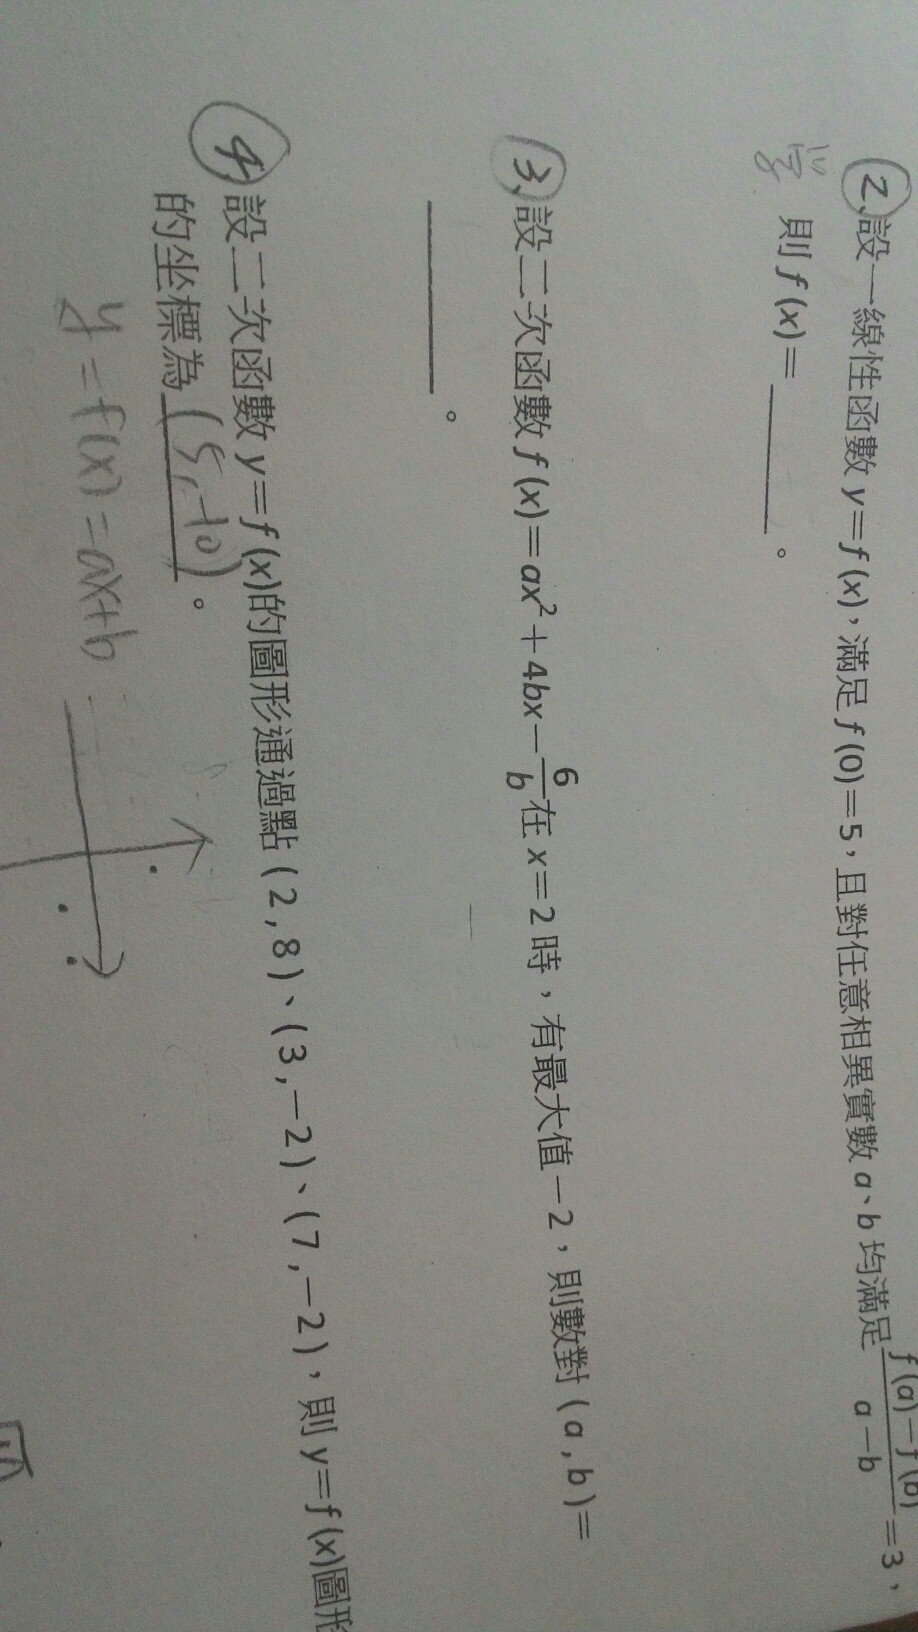 2. 設一線性函數 y＝f (x)，滿足 f (0)＝5，且對任意相異實數 a、b 均滿足 f (a)－f (b) / a－b ＝3，
則 f (x)＝______。
3. 設二次函數 f (x)＝ax²＋4bx－6/b 在 x＝2 時，有最大值－2，則數對 ( a , b )＝
______。
4. 設二次函數 y＝f (x)的圖形通過點 ( 2 , 8 )、( 3 , －2 )、( 7 , －2 )，則 y＝f (x)圖形
的坐標為 (5,-10)。
y = f(x) = ax+b